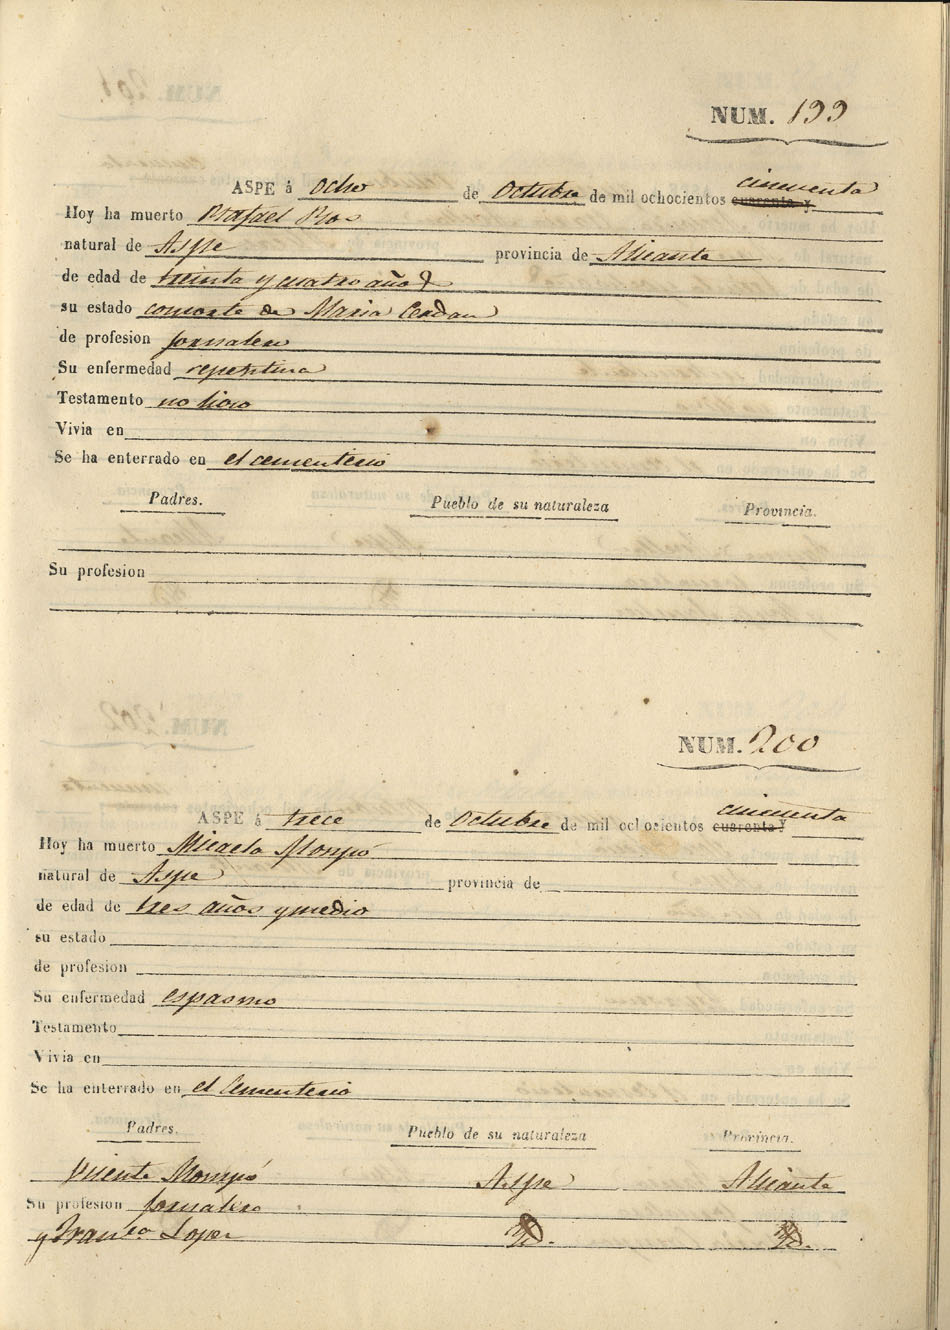 NUM. 199
ASPE á ocho de octubre de mil ochocientos cuarenta y cincuenta
Hoy ha muerto Rafael Ros
natural de Aspe provincia de Alicante
de edad de treinta y cuatro años
su estado consorte de Maria Cerdan
de profesion jornalero
Su enfermedad repentina
Testamento no hizo
Vivia en
Se ha enterrado en el cementerio
Padres. Pueblo de su naturaleza Provincia.
Su profesion
NUM. 200
ASPE á trece de octubre de mil ochocientos cuarenta y cincuenta
Hoy ha muerto Micaela Mompó
natural de Aspe provincia de
de edad de tres años y medio
su estado
de profesion
Su enfermedad espasmo
Testamento
Vivia en
Se ha enterrado en el Cementerio
Padres. Pueblo de su naturaleza Provincia.
Vicente Mompó Aspe Alicante
Su profesion jornalero
y Franca Lopez Yd. Yd.